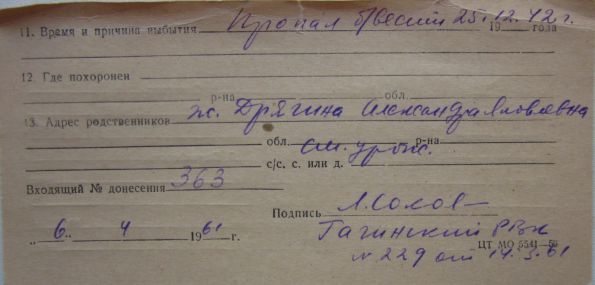 11. Время и причина выбытия Пропал б/вести 25.12.42 г.
19 года
12. Где похоронен
р-на обл.
13. Адрес родственников ж. Дрягина Александра Яковлевна
обл. см. урож. р-на
с/с. с. или д.
Входящий № донесения 363
Подпись
„ 6 „ 4 1961 г.
Гагинский РВК
ЦТ МО 5541—56
№ 229 от 14.3.61